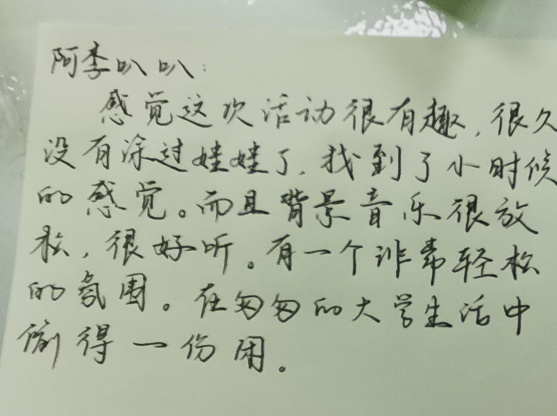 阿李叭叭:
感觉这次活动很有趣,很久
没有涂过娃娃了,找到了小时候
的感觉。而且背景音乐很放
松,很好听。有一个非常轻松
的氛围。在匆匆的大学生活中
偷得一份闲。